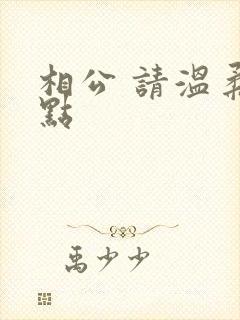 相公 請溫柔
點
禹少少